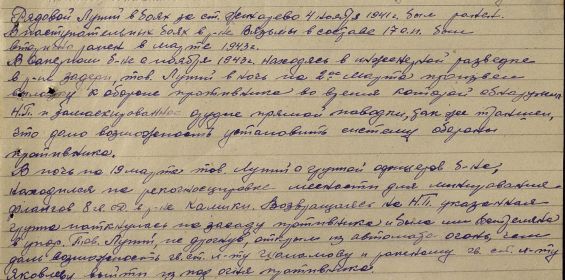 Рядовой Лутт в боях за ст. Жихарево 4 ноября 1941г. был ранен.
В наступательных боях в р-не Вязьмы в составе 17 о.п. был
вторично ранен в марте 1943г.
В саперном б-не с ноября 1943г. находясь в инженерной разведке
в р-не Задери, тов. Лутт в ночь на 2ое марта произвел
вылазку к обороне противника во время которой обнаружил
Н.П. и замаскированное орудие прямой наводки, так же траншеи,
что дало возможность установить систему обороны
противника.
В ночь на 19 марта тов. Лутт с группой офицеров б-на,
находился на рекогносцировке местности для минирования
флангов 8-й СД в р-не Калики. Возвращаясь на Н.П. указанная
группа наткнулась на засаду противника и была им обстреляна
в упор. Тов. Лутт, не дрогнув, открыл из автомата огонь, чем
дал возможность гв. ст. л-ту и раненому гв. ст. л-ту
Яковлеву выйти из под огня противника.